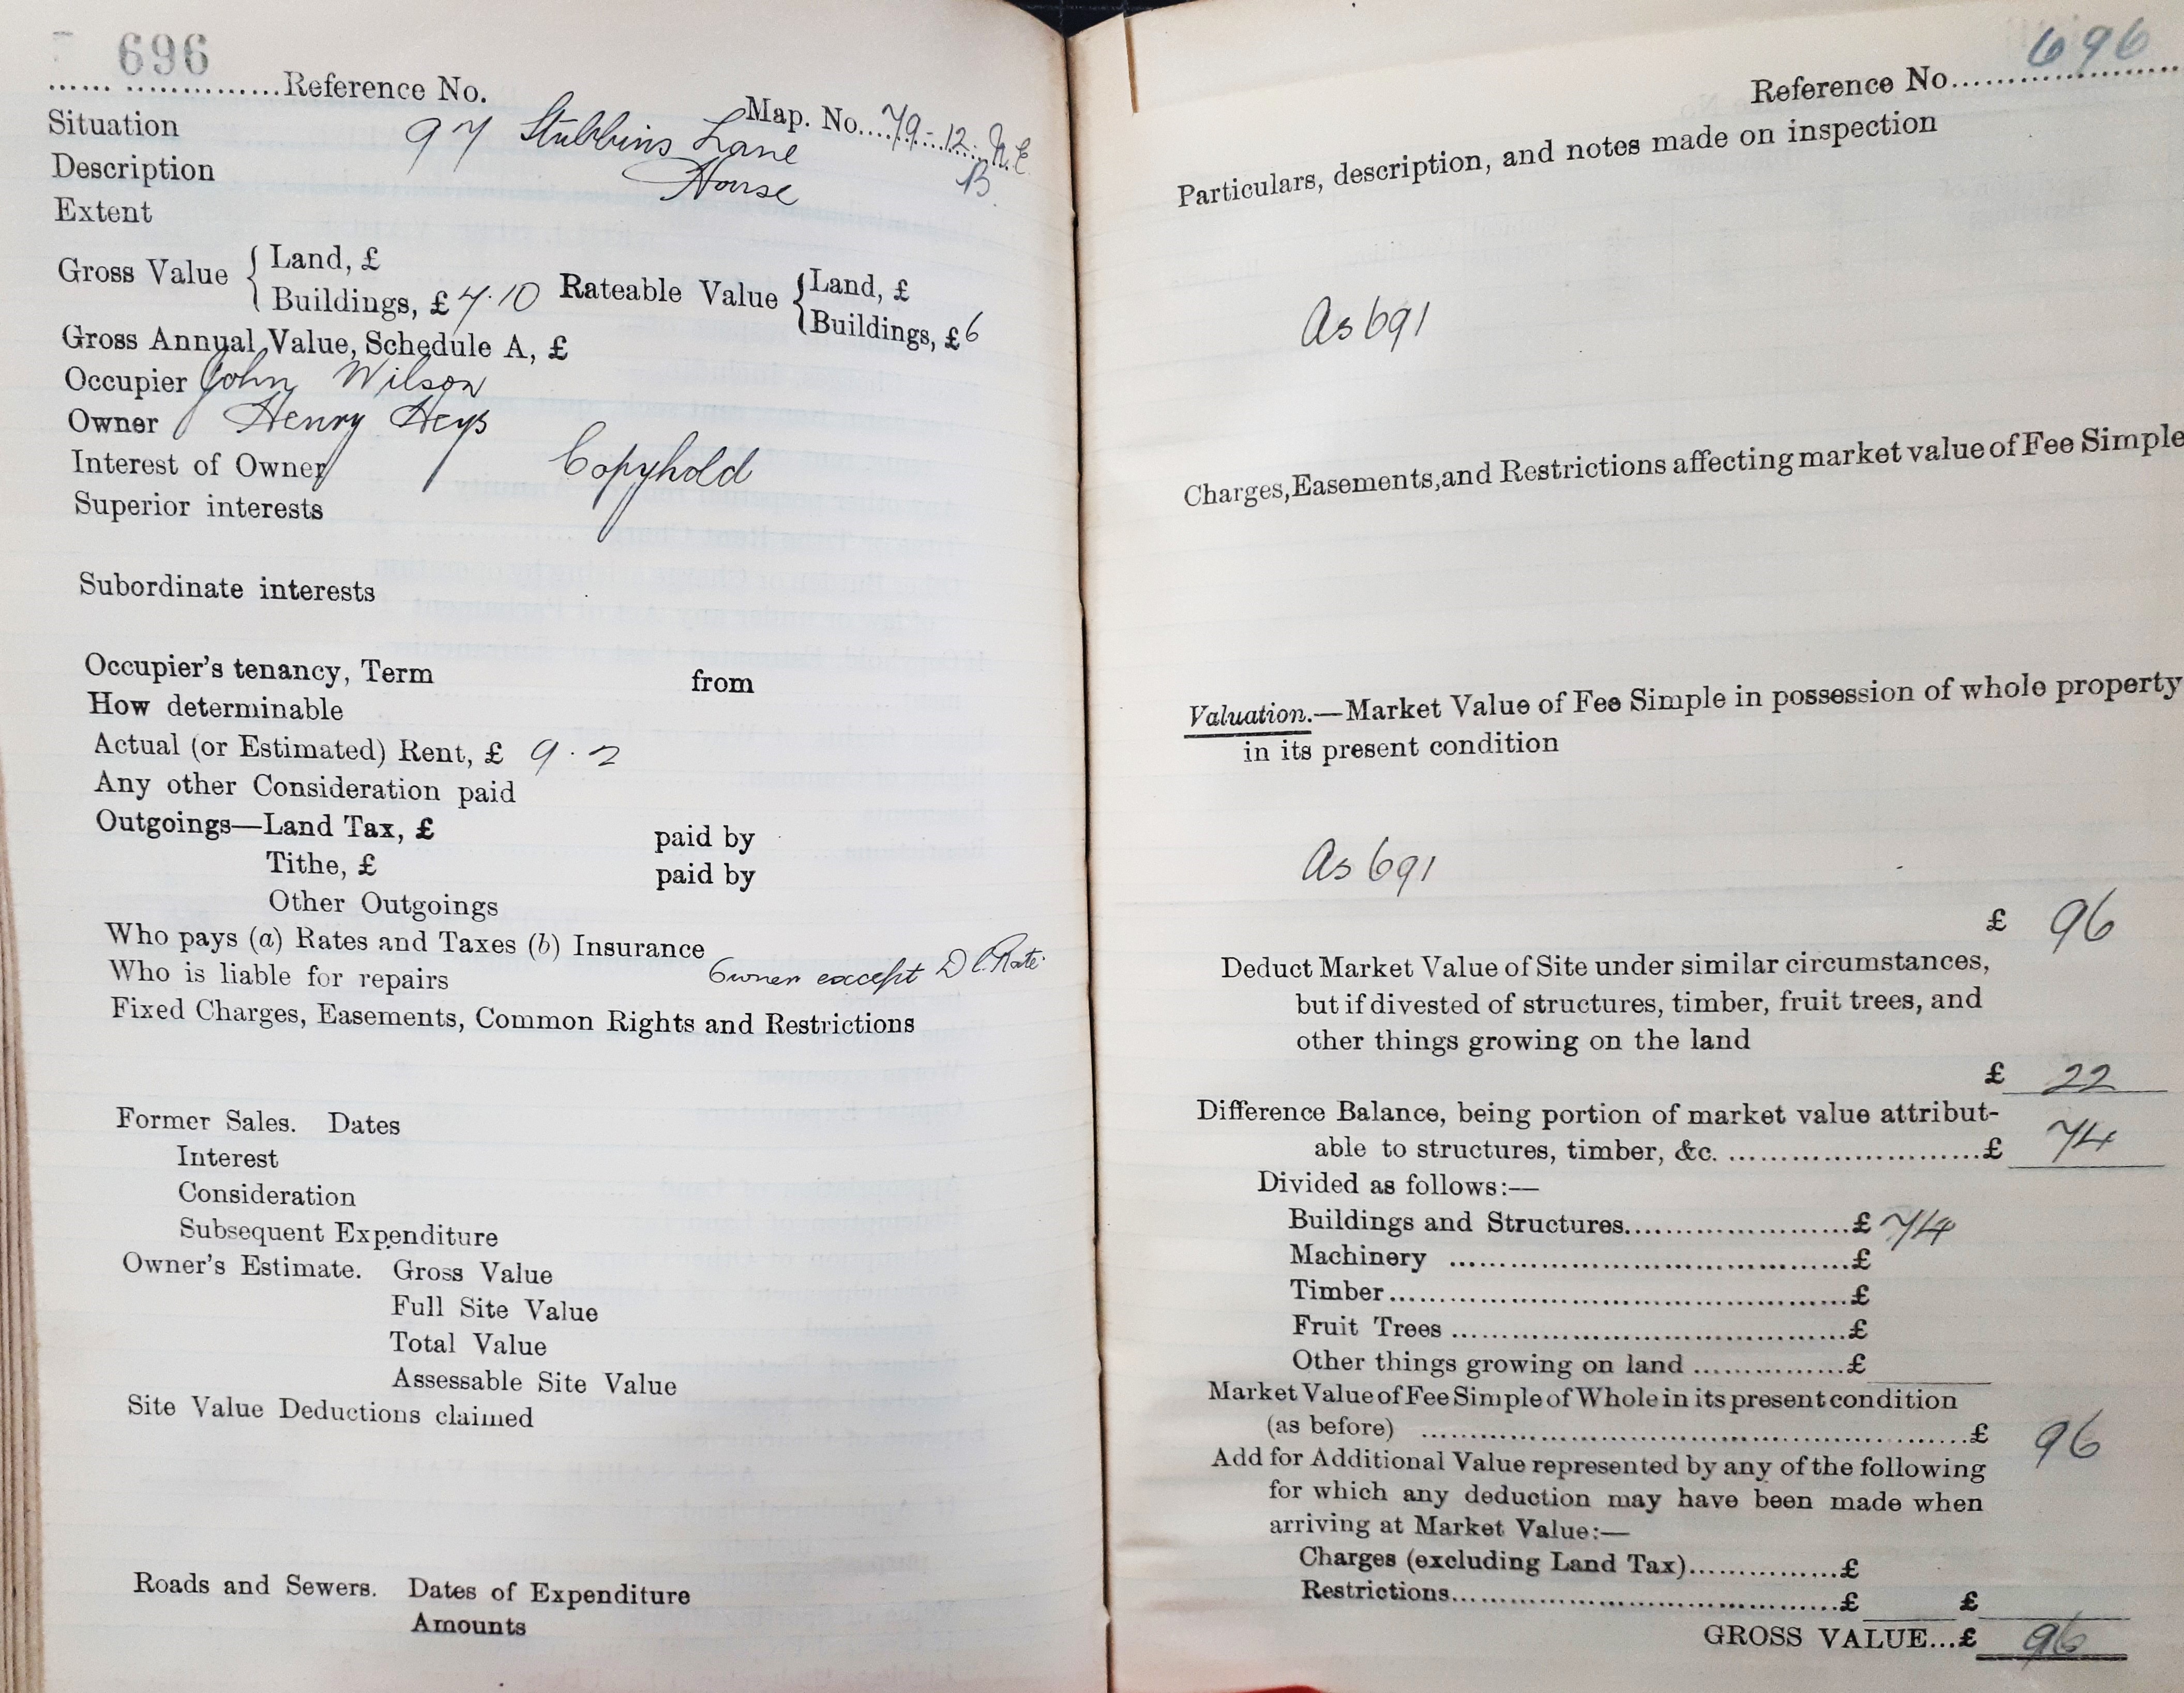 696
Reference No.
Map. No. 79-12. N.E.
B.
Situation 97 Stubbins Lane
Description House
Extent
Gross Value { Land, £
Buildings, £ 7.10 Rateable Value { Land, £
Buildings, £ 6
Gross Annual Value, Schedule A, £
Occupier John Wilson
Owner Henry Heys
Interest of Owner Copyhold
Superior interests
Subordinate interests
Occupier's tenancy, Term from
How determinable
Actual (or Estimated) Rent, £ 9.2
Any other Consideration paid
Outgoings—Land Tax, £ paid by
Tithe, £ paid by
Other Outgoings
Who pays (a) Rates and Taxes (b) Insurance
Who is liable for repairs Owner except D C. Rate.
Fixed Charges, Easements, Common Rights and Restrictions
Former Sales. Dates
Interest
Consideration
Subsequent Expenditure
Owner's Estimate. Gross Value
Full Site Value
Total Value
Assessable Site Value
Site Value Deductions claimed
Roads and Sewers. Dates of Expenditure
Amounts
Reference No. 696
Particulars, description, and notes made on inspection
As 691
Charges, Easements, and Restrictions affecting market value of Fee Simple
Valuation.—Market Value of Fee Simple in possession of whole property
in its present condition
As 691
£ 96
Deduct Market Value of Site under similar circumstances,
but if divested of structures, timber, fruit trees, and
other things growing on the land
£ 22
Difference Balance, being portion of market value attribut-
able to structures, timber, &c. £ 74
Divided as follows:—
Buildings and Structures £ 74
Machinery £
Timber £
Fruit Trees £
Other things growing on land £
Market Value of Fee Simple of Whole in its present condition
(as before) £ 96
Add for Additional Value represented by any of the following
for which any deduction may have been made when
arriving at Market Value:—
Charges (excluding Land Tax) £
Restrictions £ £
GROSS VALUE...£ 96